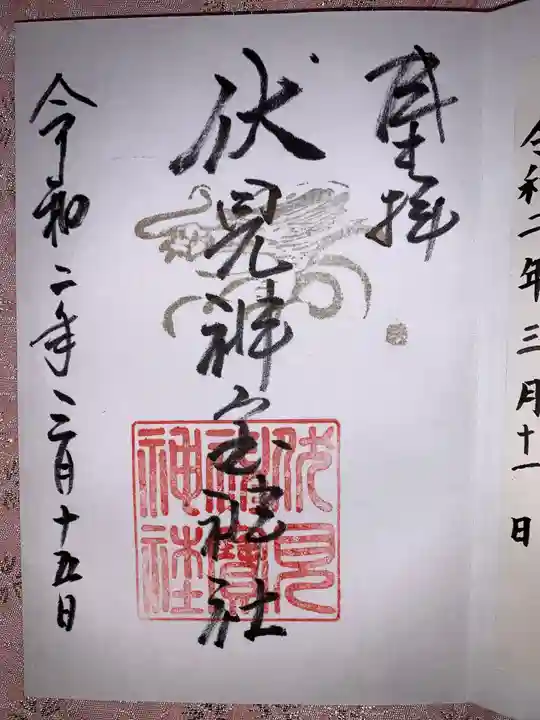 令和二年三月十一日
奉拝
伏見神宝神社
伏見
神寶
神社
令和二年三月十五日